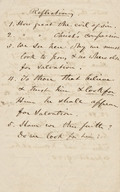 Reflections
1. How great the evil of sin
2. " Christ's compassion
3. We see here why we must
look to Jesus & no where else
for Salvation.
4. To those that believe
& trust him & look for
Him he shall appear
for Salvation
5. Have we this faith?
Do we look for him